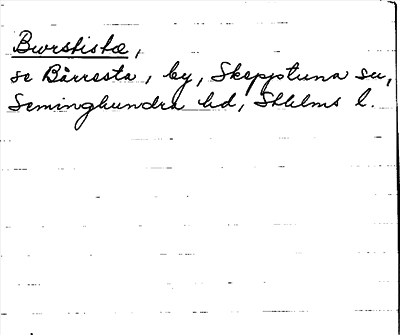 Bwrstistæ,
se Bårresta, by, Skepptuna sn,
Seminghundra hd, Sthlms l.